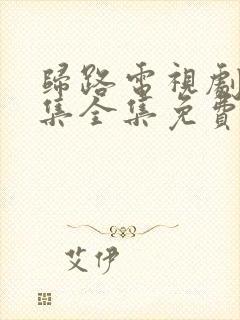 歸路電視劇
集全集免費
艾伊